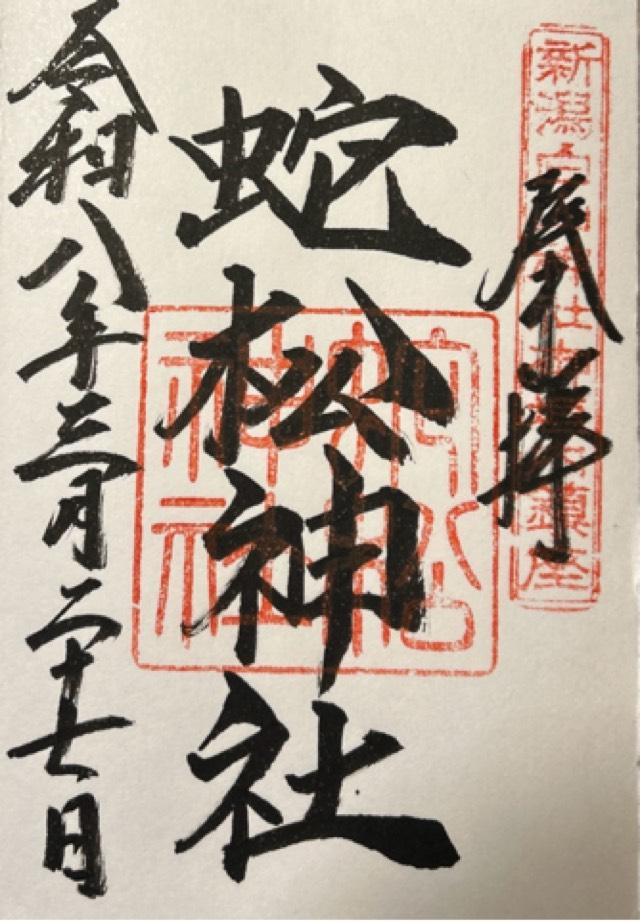 奉拝
蛇松神社
令和八年三月二十七日
蛇松神社